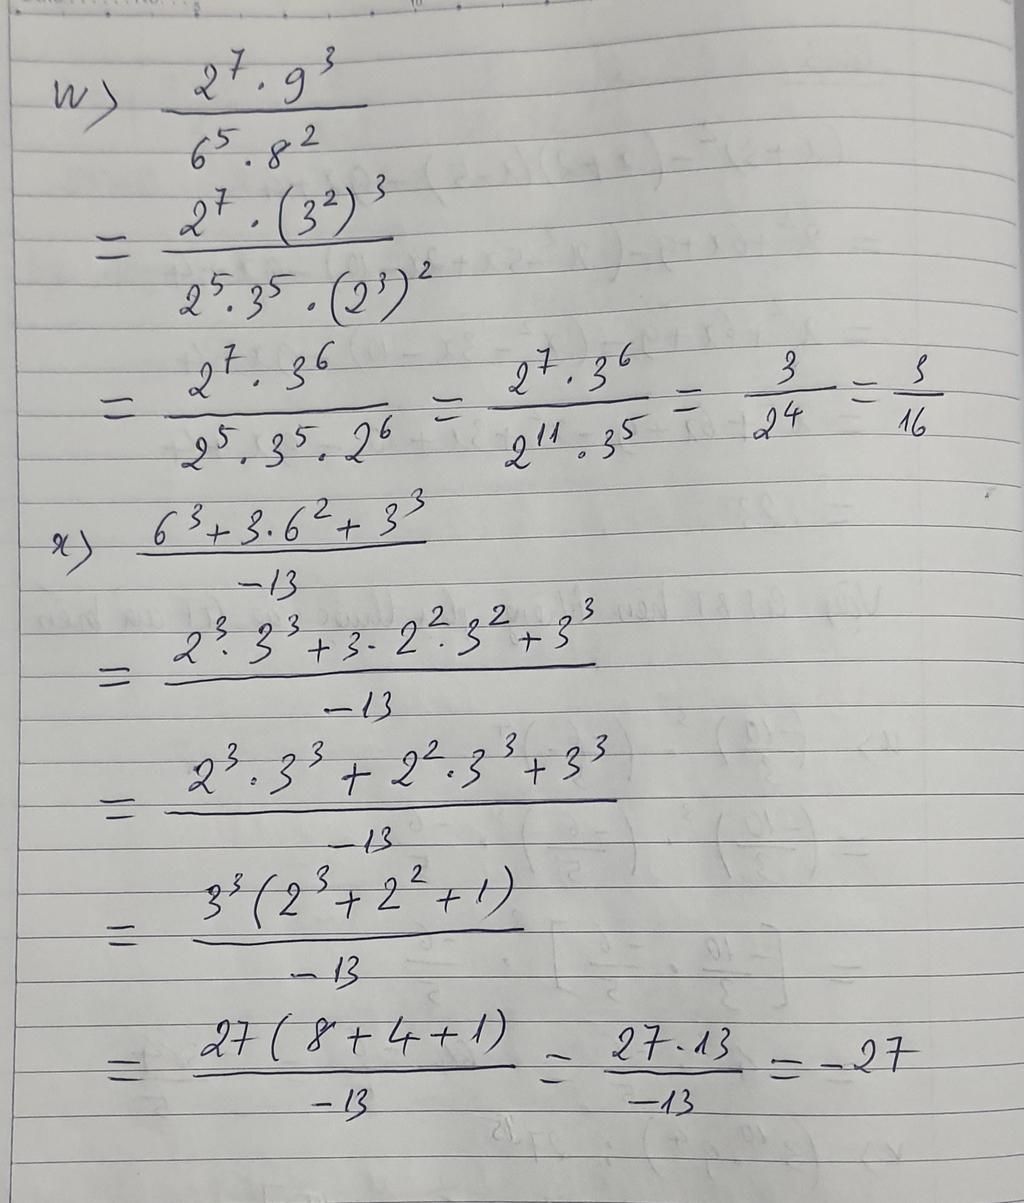 w) \frac{2^7 . 9^3}{6^5 . 8^2}
= \frac{2^7 . (3^2)^3}{2^5 . 3^5 . (2^3)^2}
= \frac{2^7 . 3^6}{2^5 . 3^5 . 2^6} = \frac{2^7 . 3^6}{2^{11} . 3^5} = \frac{3}{2^4} = \frac{3}{16}
x) \frac{6^3 + 3.6^2 + 3^3}{-13}
= \frac{2^3 . 3^3 + 3 . 2^2 . 3^2 + 3^3}{-13}
= \frac{2^3 . 3^3 + 2^2 . 3^3 + 3^3}{-13}
= \frac{3^3 (2^3 + 2^2 + 1)}{-13}
= \frac{27 (8 + 4 + 1)}{-13} = \frac{27 . 13}{-13} = -27